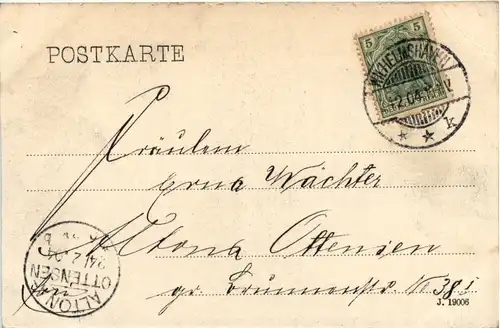 POSTKARTE
5 5
WILHELMSHAVEN
.2.04.
* * k
Fräulein
Erna Wächter
Altona Ottensen
gr. Brunnenstr. № 38 I
ALTONA
OTTENSEN
24.2.04
J. 19006